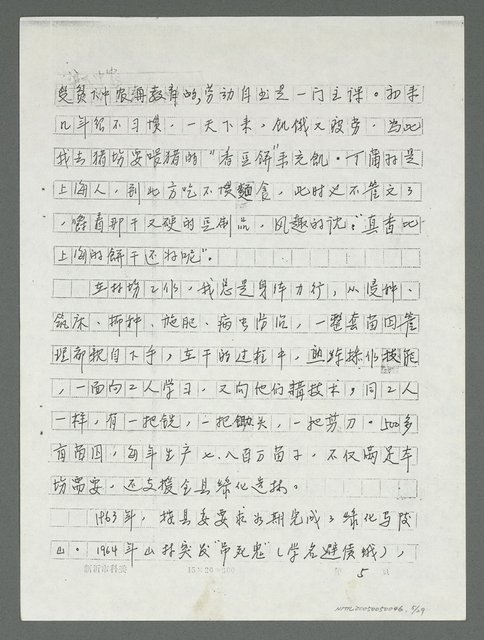 受贫下中农再教育的,劳动自然是一门主课。初来
几年很不习惯,一天下来,饥饿又疲劳,当此
我去猪场要喂猪的“香豆饼”来充饥。丁蘭荪是
上海人,到北方吃不惯麵食,此时也不管之了
,嚼着那干又硬的豆制品,风趣的说:“真香,比
上海的餅干还好呢”。
在林场工作,我总是身体力行,从浸种、
筑床、播种、施肥、病虫防治,一整套苗圃管
理都親自下手,在干的过程中,熟练操作技能
,一面向工人学习,又向他们講技术;同工人
一样,有一把锨,一把锄头,一把剪刀。500多
亩苗圃,每年生产七、八百万苗子,不仅满足本
场需要,还支援全县绿化造林。
1963年,按县委要求如期完成了绿化马陵
山。1964年山林突发“吊死鬼”(学名避债蛾),
新沂市科委 15×20=300 第 5 页
NMTL20050050046 5/29